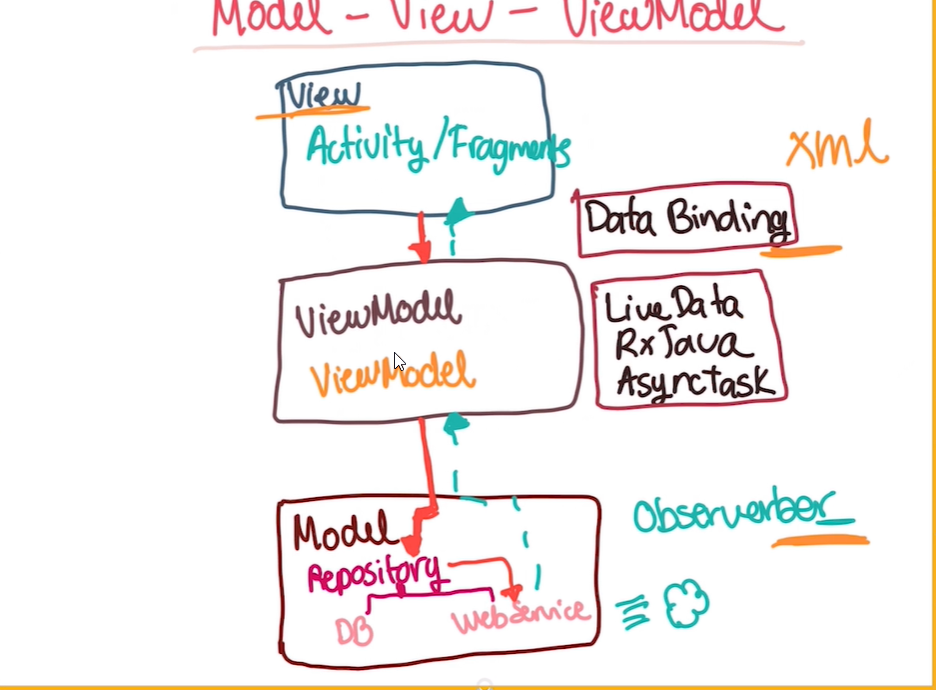 Model - View - ViewModel
View
Activity/Fragments
xml
Data Binding
ViewModel
ViewModel
LiveData
RxJava
Asynctask
Model
Repository
DB
WebService
Observerber